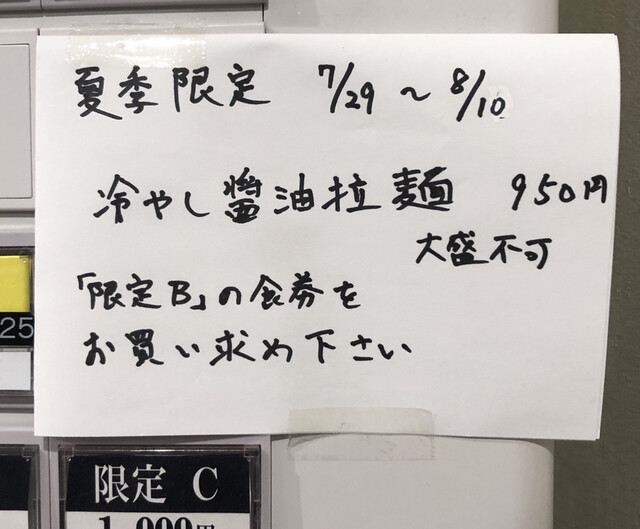 夏季限定 7/29 ~ 8/10
冷やし醤油拉麺 950円
大盛不可
「限定B」の食券を
お買い求め下さい
25
限定 C
1,000円